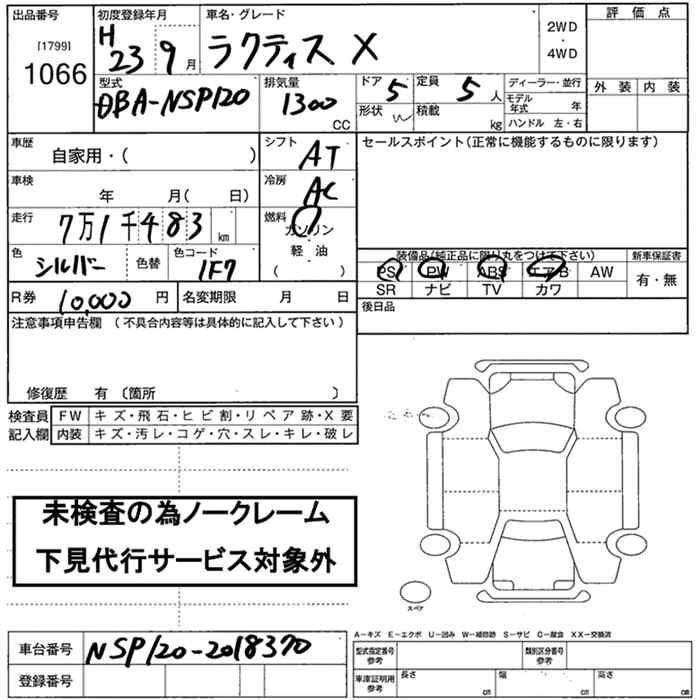 出品番号
[1799]
1066
初度登録年月
H 23 9 月
車名・グレード
ラクティス X
2WD
・
4WD
評価点
外装 内装
型式
DBA-NSP120
排気量
1300 CC
ドア 5
形状
定員 5 人
積載 kg
ディーラー・並行
モデル年式 年
ハンドル 左・右
車歴
自家用・( )
シフト AT
セールスポイント(正常に機能するものに限ります)
車検
年 月( 日)
冷房 AC
走行
7万1千483 km
燃料
ガソリン
軽・油
( )
色
シルバー 色替
色コード
1F7
装備品(純正品に限り丸をつけて下さい)
PS PW ABS エアB AW
SR ナビ TV カワ
新車保証書
有・無
R券 10,000 円
名変期限 月 日
後日品
注意事項申告欄 (不具合内容等は具体的に記入して下さい)
修復歴 有 〔箇所 〕
検査員記入欄
FW キズ・飛石・ヒビ割・リペア跡・X要
内装 キズ・汚レ・コゲ・穴・スレ・キレ・破レ
未検査の為ノークレーム
下見代行サービス対象外
スペア
A-キズ E-エクボ U-凹み W-補修跡 S-サビ C-腐食 XX-交換済
車台番号 NSP120-2018370
登録番号
型式指定番号
参考
類別区分番号
参考
車庫証明用
参考
長さ cm
幅 cm
高さ cm